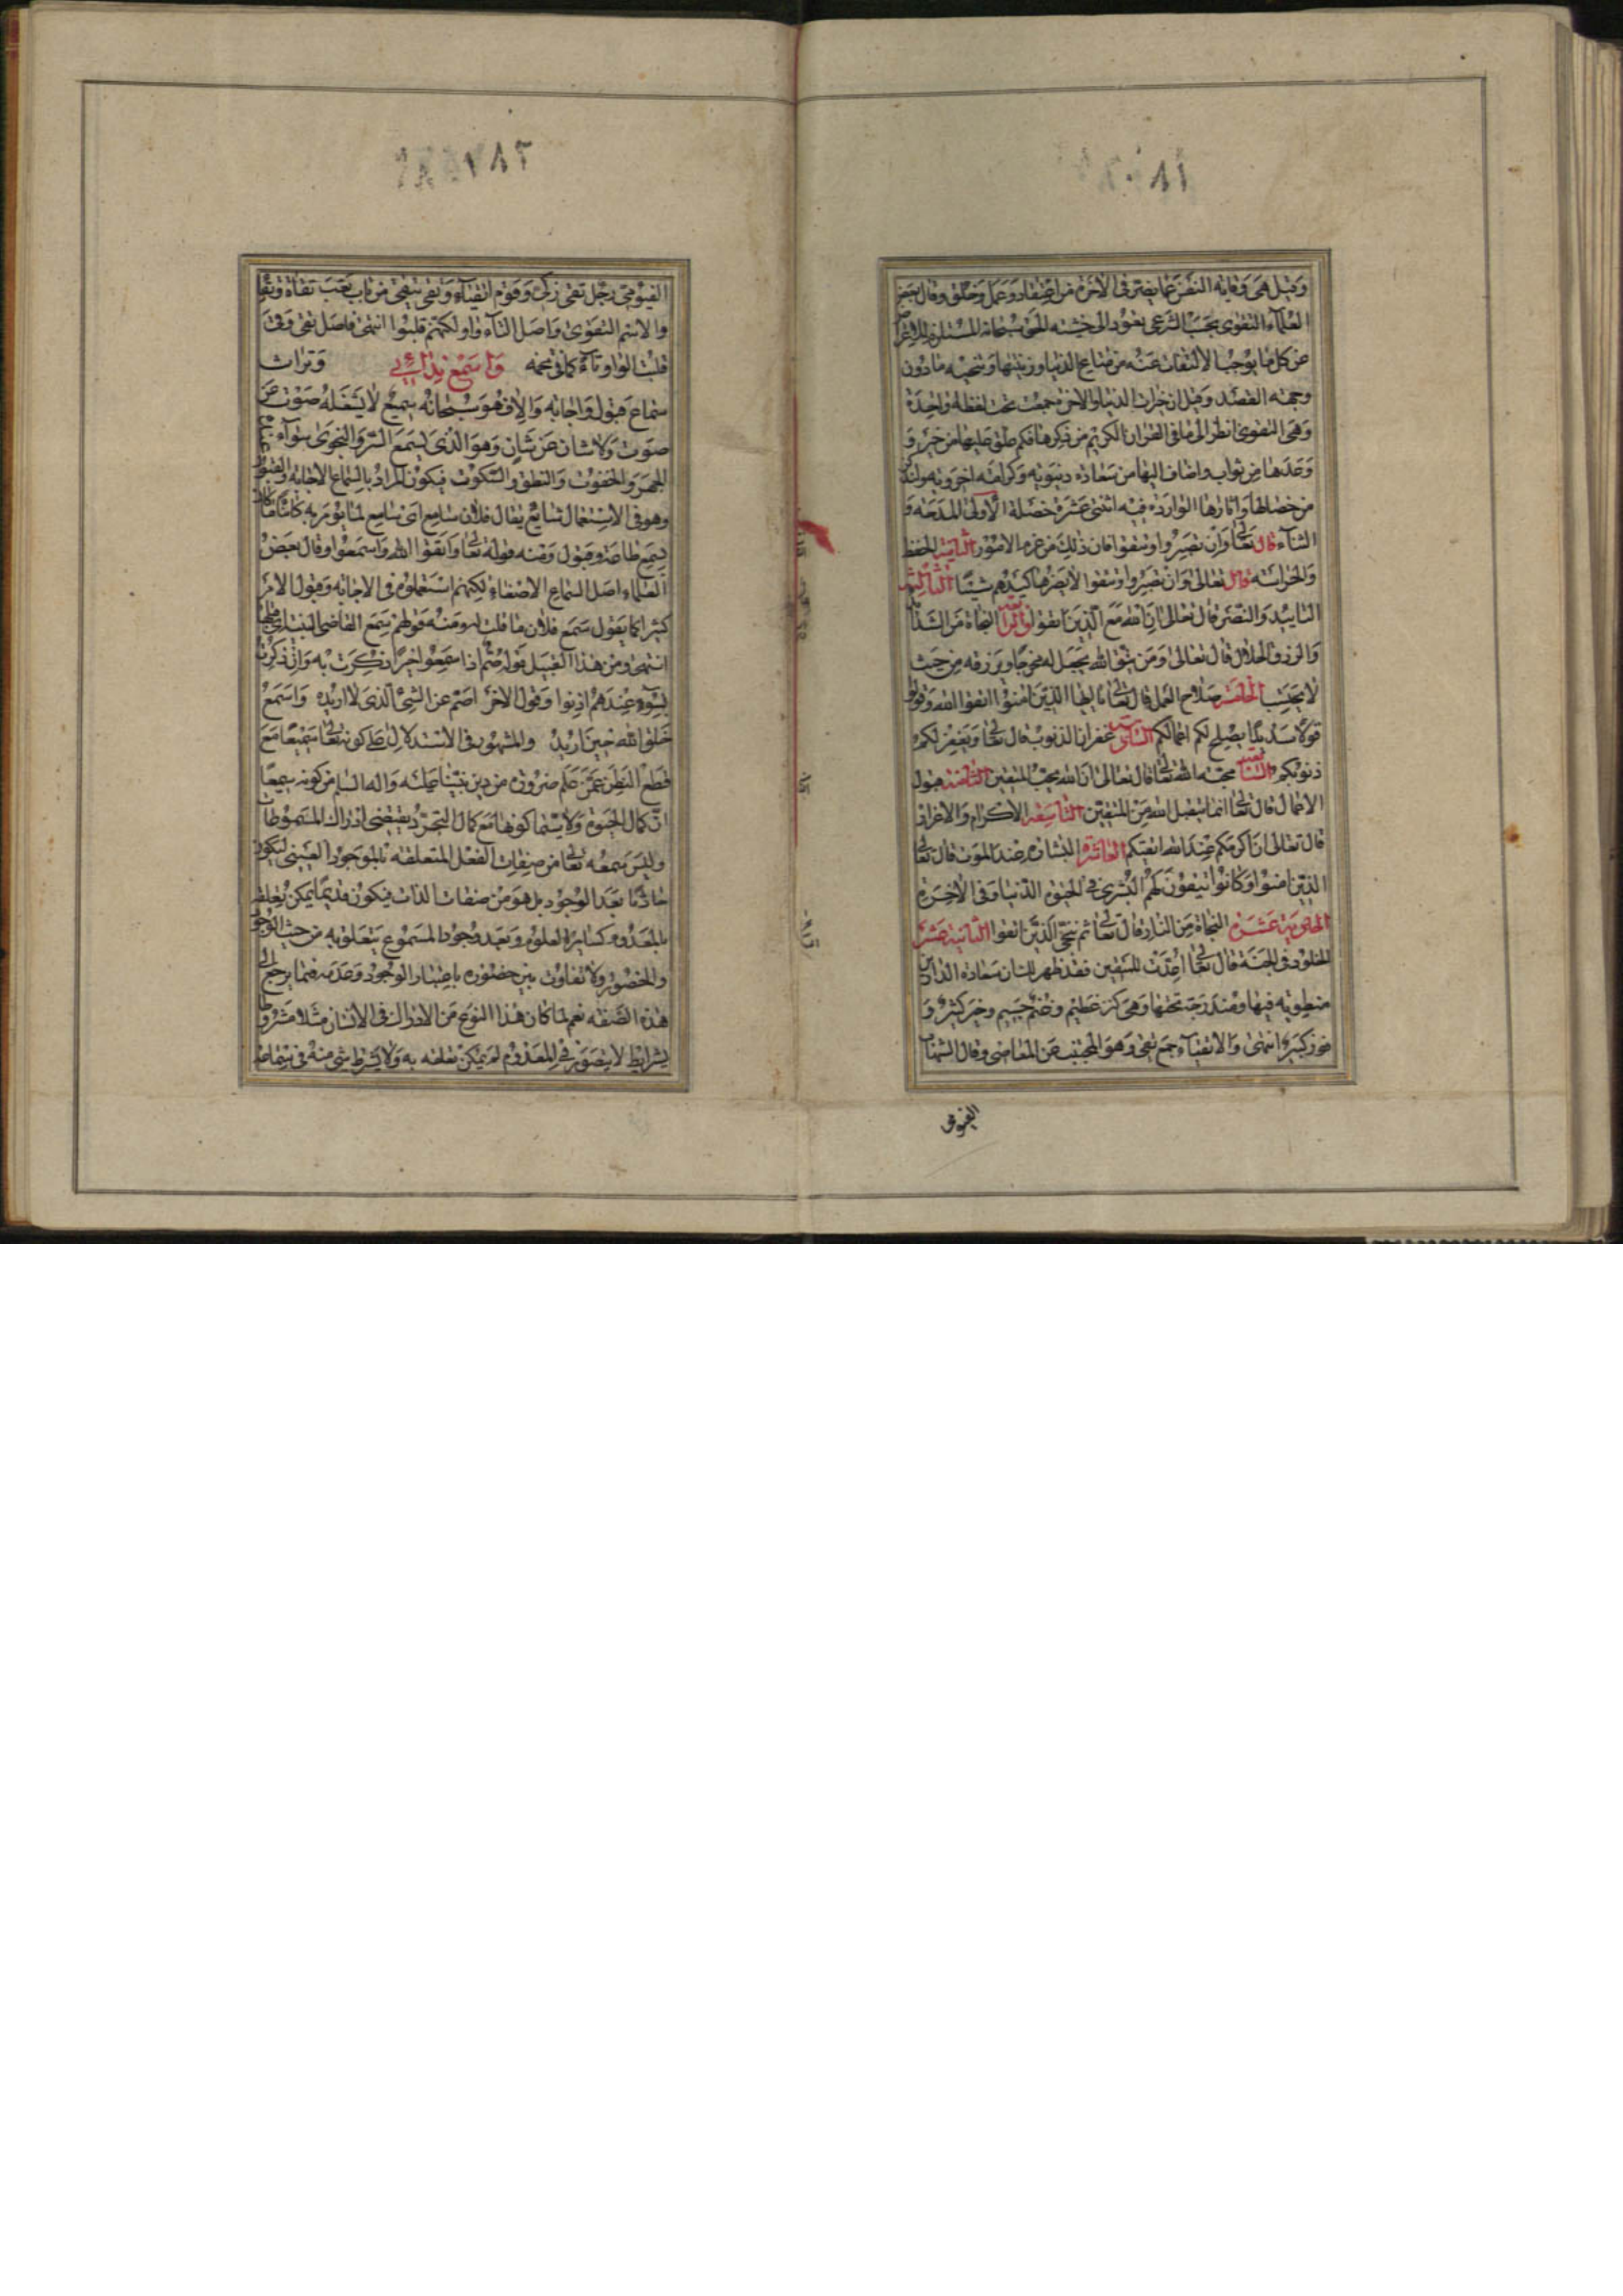 ٨١
وقيل هي وقاية النفس عما يضر في الآخرة من اعتقاد وعمل وخلق وقال بعض
العلماء التقوى بحسب الشرعى تعود الى خشية الحق سبحانه المستلزمة للاعراض
عن كل ما يوجب الالتفات عنه من متاع الدنيا وزينتها وتنحية ما دون
وجهة القصد وقيل ان خيرات الدنيا والاخرة جمعت تحت لفظة واحدة
وهي التقوى انظر الى ما فى القران الكريم من ذكرها فكم علق عليها من خير و
وعدها من ثواب واضاف اليها من سعادة دنيوية وكرامة اخروية ولنذكر
من خصالها واثارها الواردة فيه اثنتى عشرة خصلة الأولى المدحة و
الثناء قال تعالى وان تصبروا وتتقوا فان ذلك من عزم الامور الثانية الحفظ
والحراسة قال تعالى وان تصبروا وتتقوا لا يضركم كيدهم شيئا الثالثة
التاييد والنصر قال تعالى ان الله مع الذين اتقوا الرابعة النجاة من الشدائد
والرزق الحلال قال تعالى ومن يتق الله يجعل له مخرجا ويرزقه من حيث
لا يحتسب الخامسة صلاح العمل قال تعالى يا ايها الذين امنوا اتقوا الله وقولوا
قولا سديدا يصلح لكم اعمالكم السادسة غفران الذنوب قال تعالى ويغفر لكم
ذنوبكم السابعة محبة الله تعالى قال تعالى ان الله يحب المتقين الثامنة قبول
الاعمال قال تعالى انما يتقبل الله من المتقين التاسعة الاكرام والاعزاز
قال تعالى ان اكرمكم عند الله اتقيكم العاشرة البشارة عند الموت قال تعالى
الذين امنوا وكانوا يتقون لهم البشرى فى الحيوة الدنيا وفى الاخرة
الحادية عشرة النجاة من النار قال تعالى ثم ننجى الذين اتقوا الثانية عشرة
الخلود فى الجنة قال تعالى اعدت للمتقين فقد ظهر لك ان سعادة الدارين
منطوية فيها ومندرجة تحتها وهى كنز عظيم وغنم جسيم وخير كثير و
فوز كبير انتهى والاتقياء جمع تقى وهو المجتنب عن المعاصى وقال الشهاب
الفيومى
٨٢
الفيومى رجل تقى زكى وقوم اتقياء وتقى يتقى من باب تعب تقاة وتقى
والاسم التقوى واصل التاء واو لكنهم قلبوا انتهى فاصل تقى وقى
قلبت الواو تاء كما فى تخمة وتراث واسمع ندائي
سماع قبول واجابة والا فهو سبحانه سميع لا يشغله صوت عن
صوت ولا شان عن شان وهو الذى يسمع السر والنجوى سواء عنده
الجهر والخفوت والنطق والسكوت فيكون المراد بالسماع الاجابة والقبول
وهو فى الاستعمال شايع يقال فلان سامع اى سامع لما يؤمر به كائنا ما كان
سمع طاعة وقبول ومنه قوله تعالى واتقوا الله واسمعوا وقال بعض
العلماء اصل السماع الاصغاء لكنهم استعملوه فى الاجابة وقبول الامر
كثيرا كما يقول سمع فلان ما قلت له ومنه قولهم سمع القاضى البينة اى قبلها
انتهى ومن هذا القبيل قوله صم اذا سمعوا خيرا ذكرت به وان ذكرت
بسوء عندهم اذنوا وقول الاخر اصم عن الشئ الذى لا اريده واسمع
خلق الله حين اريد والمشهور فى الاستدلال على كونه تعالى سميعا مع
قطع النظر عمن علم ضرورة من دين نبينا صلى الله عليه واله السلم من كونه سميعا
ان كمال الحيوة ولا سيما كونها مع كمال التجرد يقتضى ادراك المسموعات
وليس سمعه تعالى من صفات الفعل المتعلقة بالموجود العينى ليكون
حادثا بعد الوجود بل هو من صفات الذات فيكون قديما يمكن تعلقه
بالمعدوم كساير العلوم وبعد وجود المسموع يتعلق به من حيث الوجود
والحضور ولا تفاوت بين حضوره باعتبار الوجود وعدمه فيما يرجع الى
هذه الصفة نعم لما كان هذا النوع من الادراك فى الانسان مثلا مشروطا
بشرايط لا يتصور فى المعدوم لم يمكن تعلقه به ولا يشترط شئ منه فى